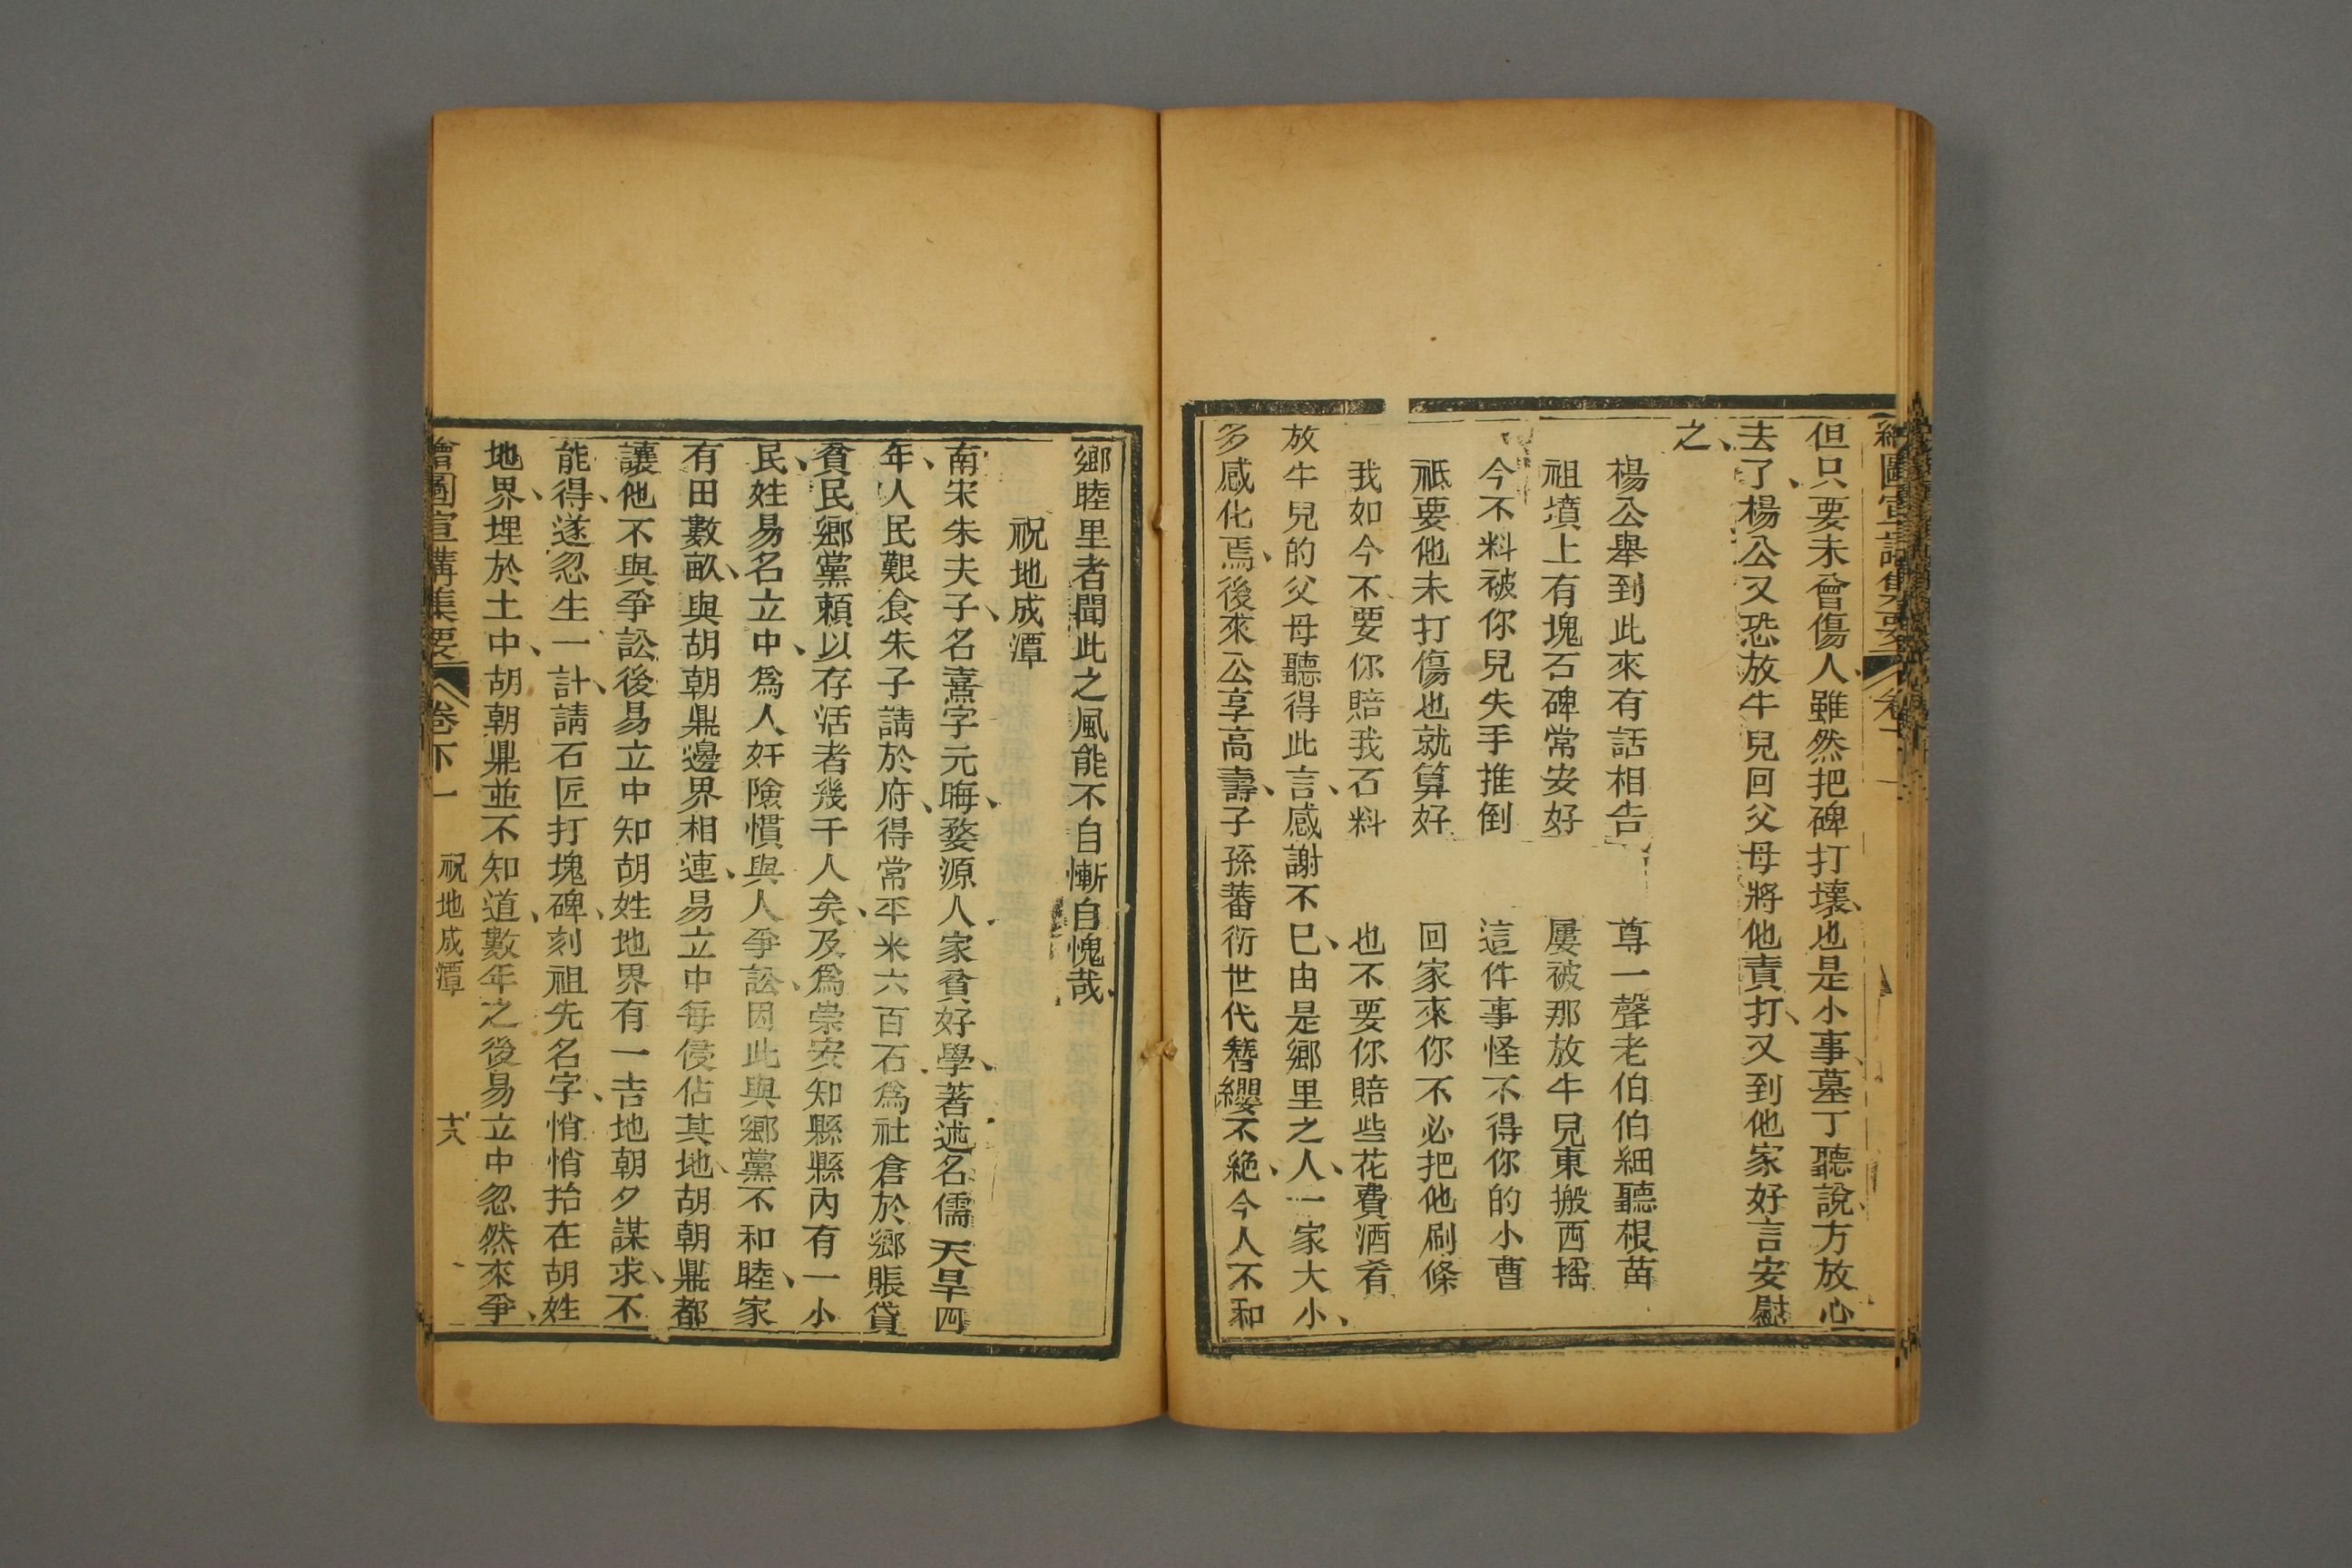 但只要未曾傷人、雖然把碑打壞、也是小事、墓丁聽說、方放心
去了、楊公又恐放牛兒回父母將他責打、又到他家好言安慰
之、
楊公舉到此來有話相告　尊一聲老伯伯細聽根苗
祖墳上有塊石碑常安好　屢被那放牛兒東搬西搖
今不料被你兒失手推倒　這件事怪不得你的小曹
祇要他未打傷也就算好　回家來你不必把他刷條
我如今不要你賠我石料　也不要你賠些花費酒肴
放牛兒的父母聽得此言、感謝不已、由是鄉里之人、一家大小、
多感化焉、後來公享高壽、子孫蕃衍世代簪纓不絶、今人不和
鄉睦里者聞此之風能不自慚自愧哉、
祝地成潭
南宋朱夫子、名熹字元晦、婺源人家貧好學、著述名儒天旱四
年、人民艱食朱子請於府、得常平米六百石、爲社倉於鄉賬貸
貧民鄉黨頼以存活者幾千人矣、及爲崇安知縣縣內有一小
民、姓易名立中、爲人奸險慣與人爭訟、因此與鄉黨不和睦、家
有田數畝、與胡朝鼎邊界相連、易立中每侵佔其地、胡朝鼎都
讓他不與爭訟後易立中知胡姓地界有一吉地朝夕謀求、不
能得、遂忽生一計、請石匠打塊碑、刻祖先名字、悄悄抬在胡姓
地界、埋於土中、胡朝鼎並不知道、數年之後易立中忽然來爭、
繪圖宣講集要　卷下一　祝地成潭　十八